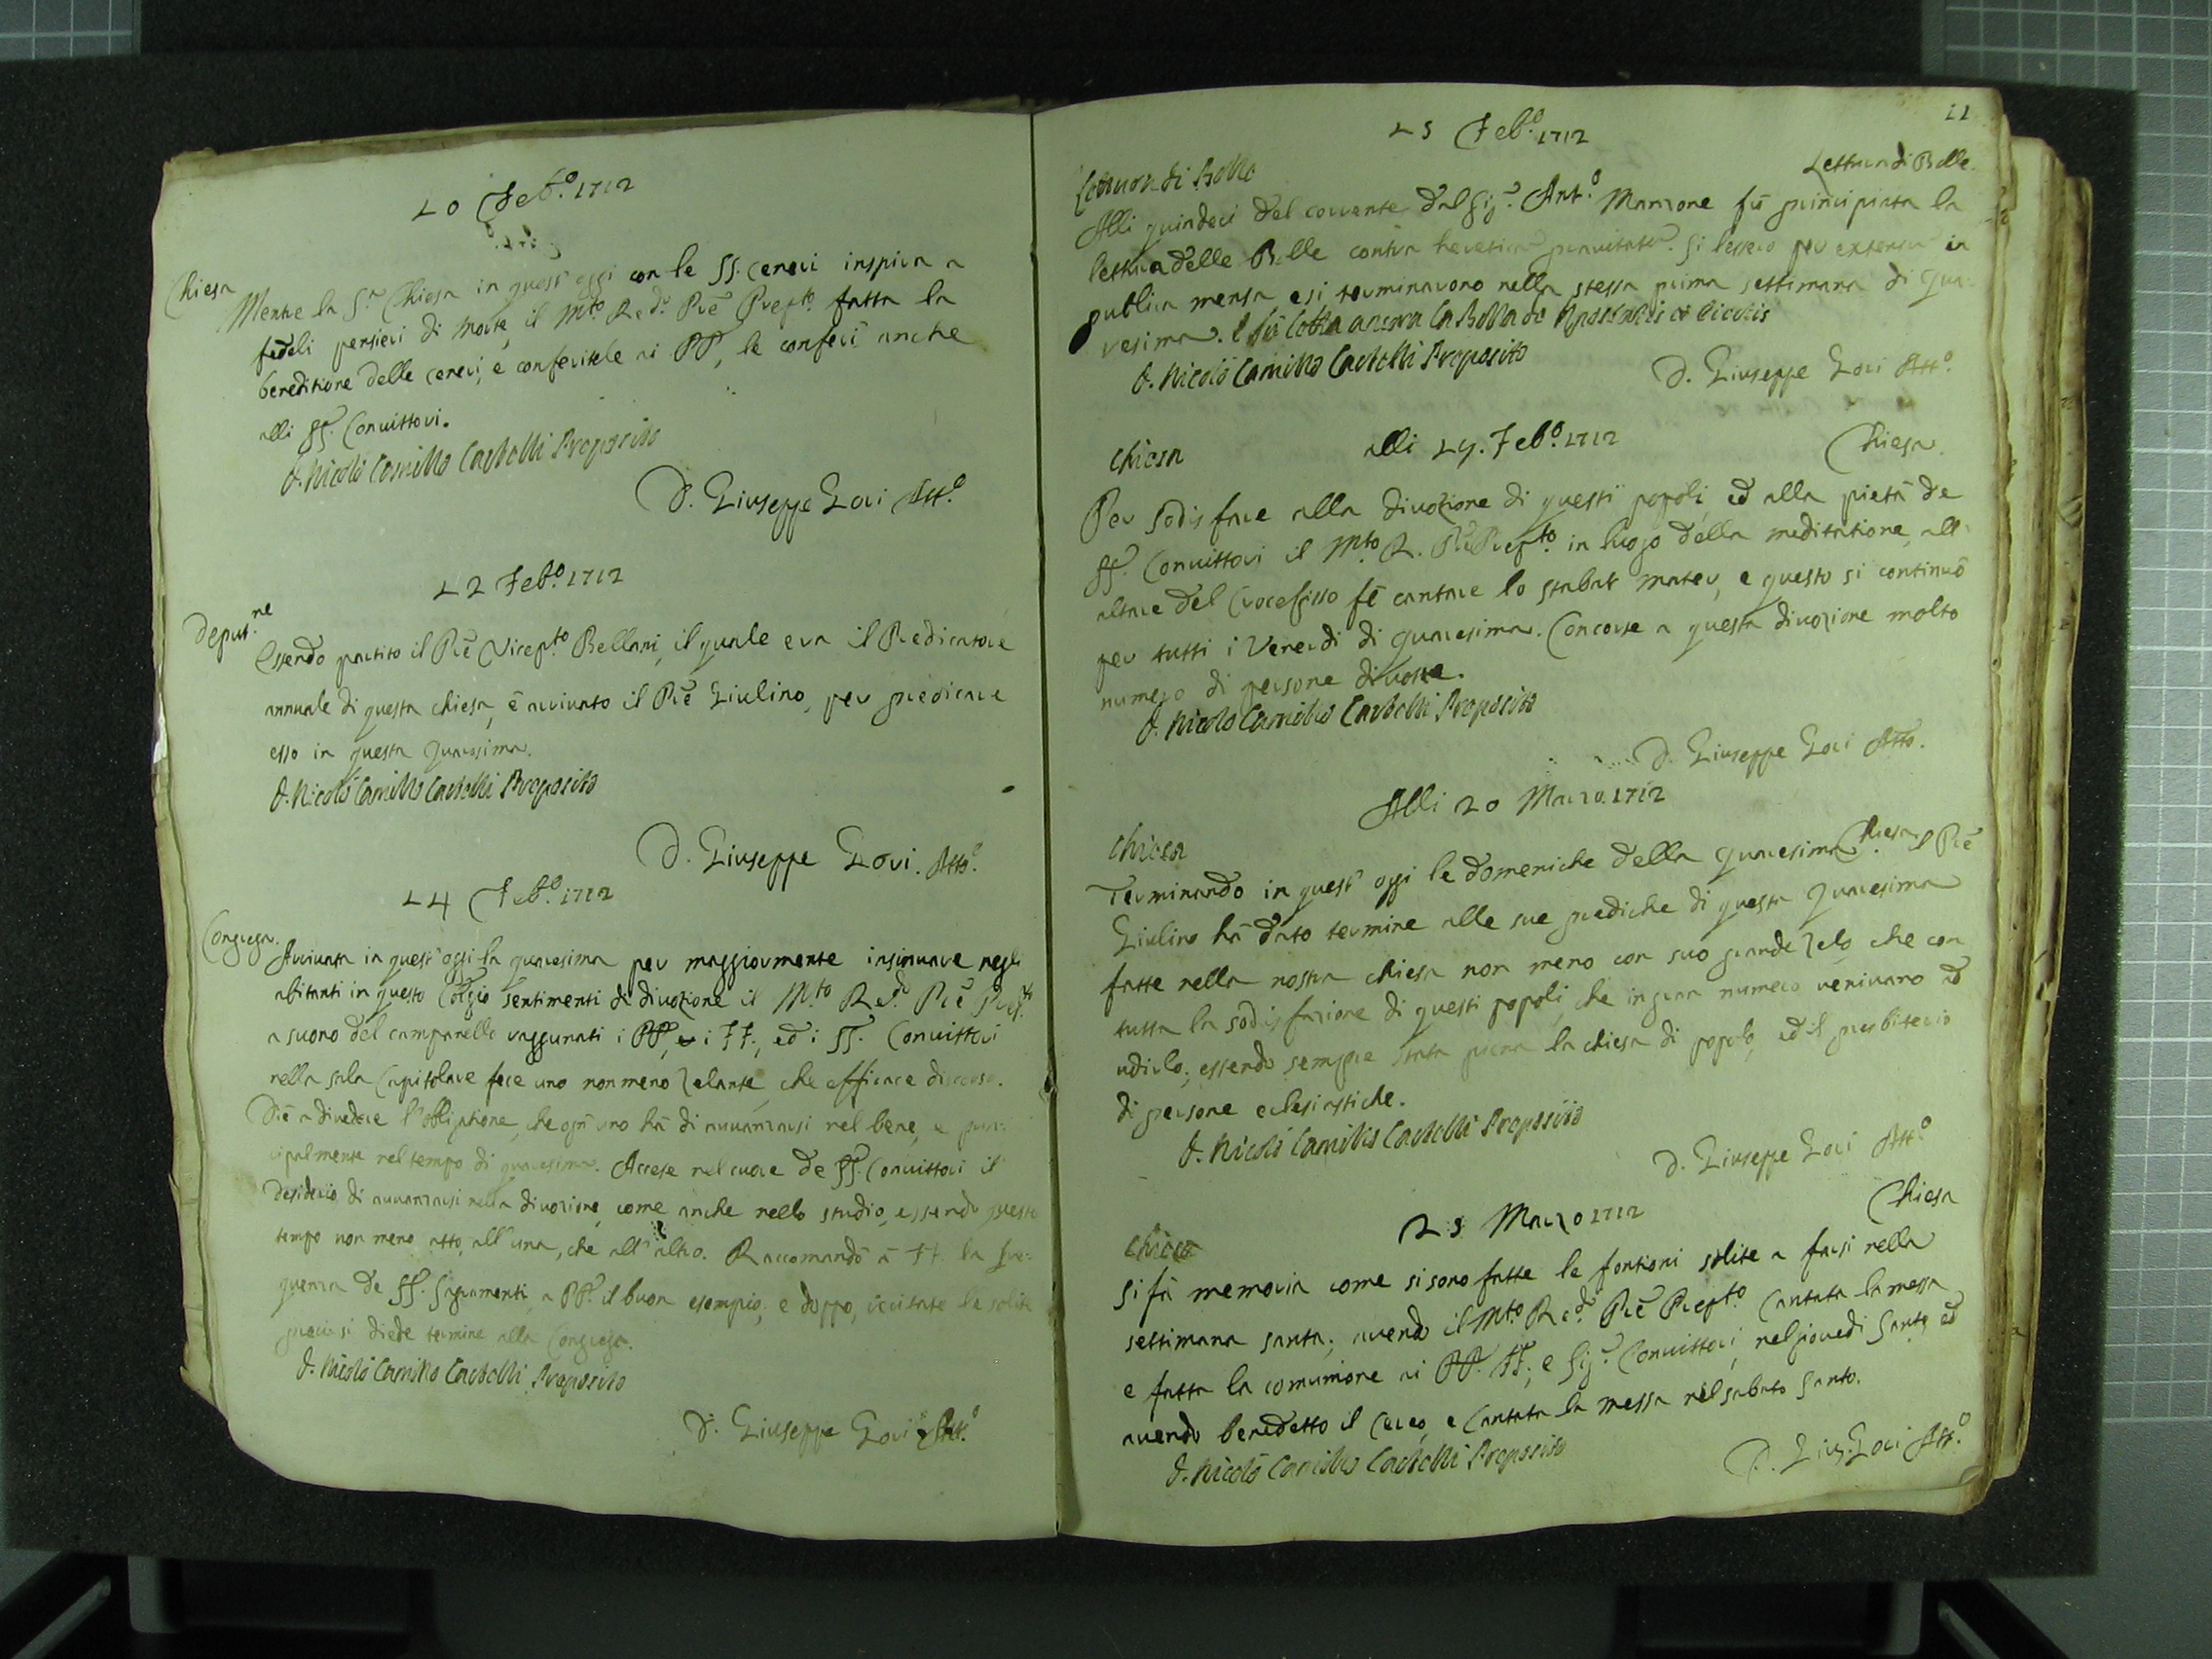 10 Feb.o 1712
Chiesa
Mentre la S.a Chiesa in quest'oggi con le SS. ceneri inspira a
fedeli pensieri di morte, il M.to Red.o Prē Prep.to fatta la
beneditione delle ceneri, e conferitele ai PP, le conferì anche
alli SS. Convittori.
D. Nicolò Camillo Castelli Preposito
D. Giuseppe Gori Att.o
12 Feb.o 1712
Deput.ne
Essendo partito il Prē Vicep.to Bellani, il quale era il Predicatore
annuale di questa chiesa, è arrivato il Prē Giulino, per predicare
esso in questa quaresima.
D. Nicolò Camillo Castelli Preposito
D. Giuseppe Gori. Atto.
14 Feb.o 1712
Congrega.
Arrivata in quest'oggi la quaresima per maggiormente insinuare negli
abitanti in questo Collegio sentimenti di divozione il M.to Re.do Prē Prep.to
a suono del campanello raggunati i PP, e i FF., ed i SS. Convittori
nella sala Capitolare fece uno non meno zelante, che efficace discorso.
Diē a divedere l'obligatione, che ogn'uno hà di avvanzarsi nel bene, e prin-
cipalmente nel tempo di quaresima. Accese nel cuore de SS. Convittori il
desiderio di avvanzarsi nella divozione, come anche nello studio, essendo questo
tempo non meno atto, all'una, che all'altro. Raccomandò à FF. la fre-
quenza de SS. Sagramenti, a PP. il buon esempio; e doppo, recitate le solite
preci si diede termine alla Congrega.
D. Nicolò Camillo Castelli Preposito
D. Giuseppe Gori Att.o
11
15 Feb.o 1712
Lettura di Bolle
Lettura di Bolle.
Alli quindeci del corrente dal Sig.r Ant.o Marzone fù principiata la
lettura delle Bolle contra heretica pravitatē. Si lessero per extensū in
publica mensa, e si terminarono nella stessa prima settimana di qua-
resima. E fù letta ancora la Bolla de Apostatis et eiectis
D. Nicolò Camillo Castelli Preposito
D. Giuseppe Gori Att.o
Chiesa
alli 19. Feb.o 1712
Chiesa.
Per sodisfare alla divozione di questi popoli, ed alla pietà de
SS. Convittori il M.to R. Prē Prep.to in luogo della meditatione, all'
altare del Crocefisso fē cantare lo stabat mater, e questo si continuò
per tutti i Venerdi di quaresima. Concorse a questa divozione molto
numero di persone divote.
D. Nicolò Camillo Castelli Preposito
D. Giuseppe Gori Atto.
Alli 20 Marzo. 1712
Chiesa
Chiesa
Terminando in quest'oggi le domeniche della quaresima. Il Prē
Giulino hà dato termine alle sue prediche di questa quaresima
fatte nella nostra chiesa non meno con suo grande zelo, che con
tutta la sodisfazione di questi popoli, che in gran numero venivano ad
udirlo; essendo sempre stata piena la chiesa di popolo, ed il presbiterio
di persone eclesiastiche.
D. Nicolò Camillo Castelli Preposito
D. Giuseppe Gori Att.o
Chiesa
25 Marzo 1712
Chiesa
Si fà memoria come si sono fatte le fontioni solite a farsi nella
settimana santa; avendo il M.to Re.do Prē Prep.to Cantata la messa
e fatta la comunione ai PP. FF., e Sig.ri Convittori nel giovedi Santo, ed
avendo benedetto il Cereo, e Cantata la messa nel sabato Santo.
D. Nicolò Camillo Castelli Preposito
D. Gius. Gori Att.o